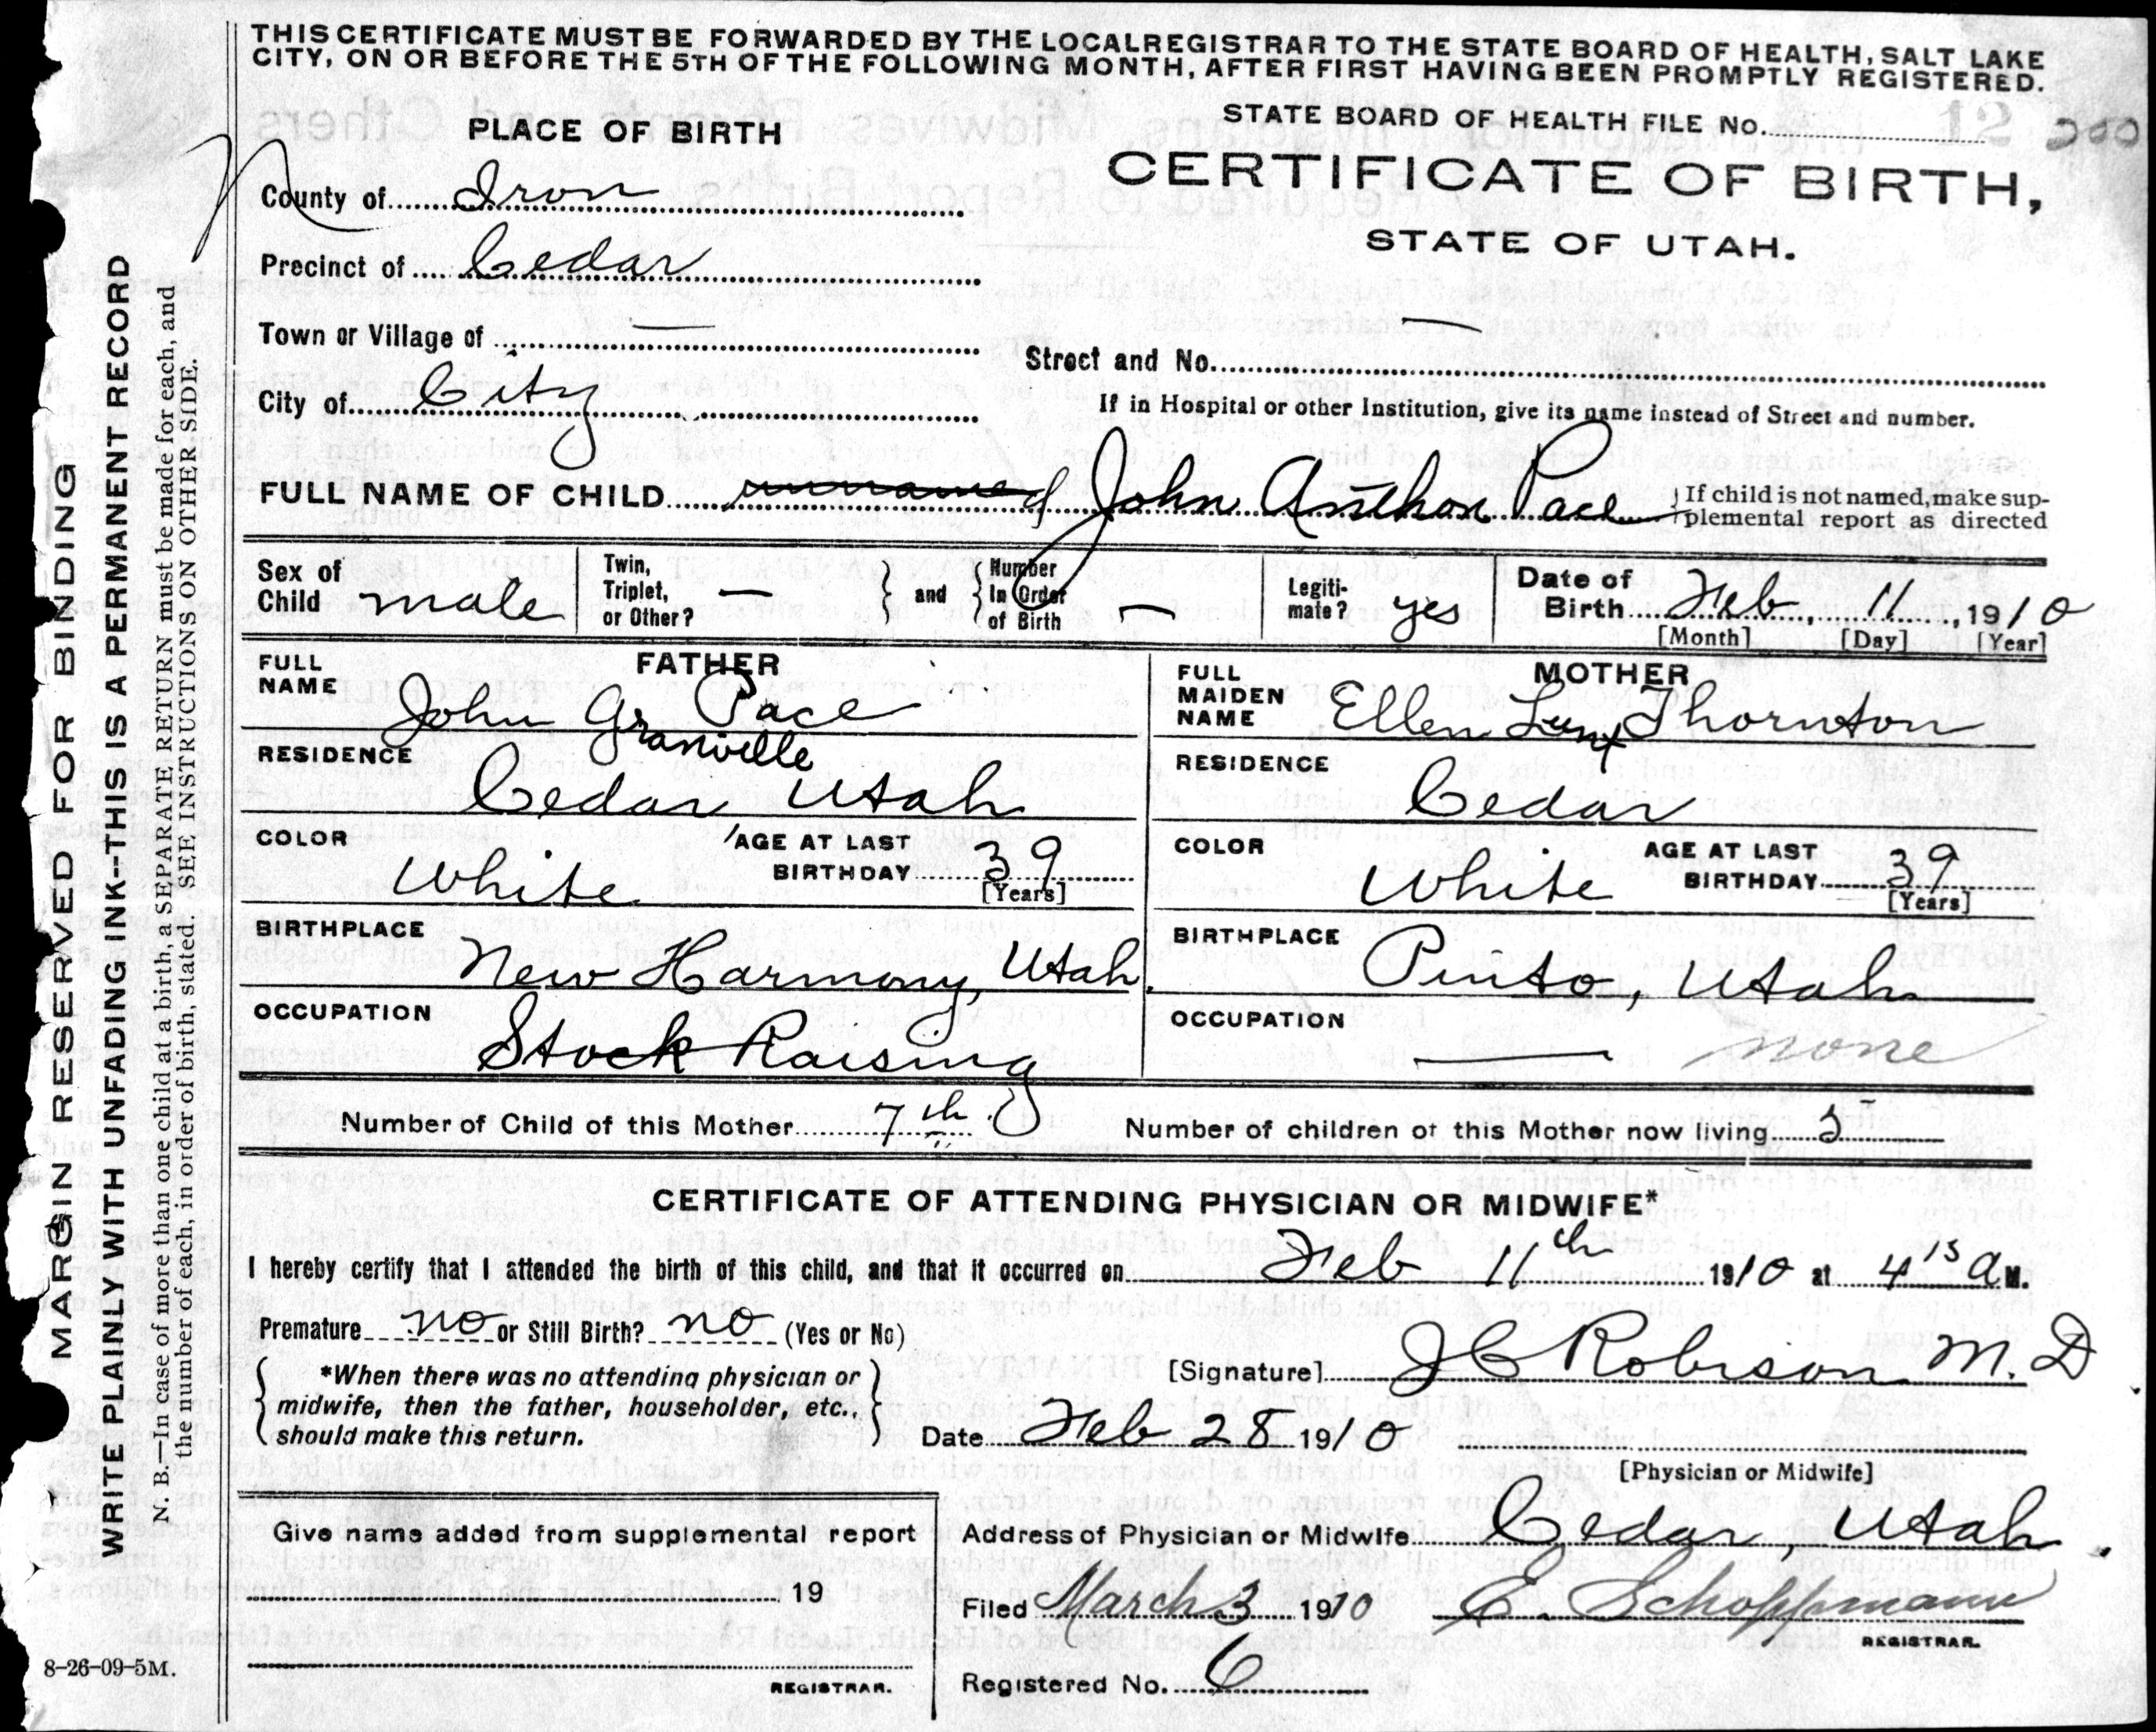 THIS CERTIFICATE MUST BE FORWARDED BY THE LOCAL REGISTRAR TO THE STATE BOARD OF HEALTH, SALT LAKE
CITY, ON OR BEFORE THE 5TH OF THE FOLLOWING MONTH, AFTER FIRST HAVING BEEN PROMPTLY REGISTERED.
STATE BOARD OF HEALTH FILE No. 12 200
PLACE OF BIRTH
CERTIFICATE OF BIRTH,
STATE OF UTAH.
County of Iron
Precinct of Cedar
Town or Village of —
Street and No. —
City of City
If in Hospital or other Institution, give its name instead of Street and number.
FULL NAME OF CHILD unnamed John Anthon Pace
If child is not named, make sup-
plemental report as directed
Sex of Child male
Twin, Triplet, or Other? —
and
Number In Order of Birth —
Legiti-mate? yes
Date of Birth Feb 11, 1910
[Month] [Day] [Year]
FATHER
FULL NAME John Gr Pace
Granville
RESIDENCE
Cedar Utah
COLOR White
AGE AT LAST BIRTHDAY 39
[Years]
BIRTHPLACE
New Harmony, Utah.
OCCUPATION
Stock Raising
MOTHER
FULL MAIDEN NAME Ellen Thornton
RESIDENCE
Cedar
COLOR White
AGE AT LAST BIRTHDAY 39
[Years]
BIRTHPLACE
Pinto, Utah
OCCUPATION
— none
Number of Child of this Mother 7th
Number of children of this Mother now living 5
CERTIFICATE OF ATTENDING PHYSICIAN OR MIDWIFE*
I hereby certify that I attended the birth of this child, and that it occurred on Feb 11th 1910 at 4 15 a M.
Premature no or Still Birth? no (Yes or No)
*When there was no attending physician or
midwife, then the father, householder, etc.,
should make this return.
[Signature] J C Robison M.D.
Date Feb 28 1910
[Physician or Midwife]
Give name added from supplemental report
19
REGISTRAR.
Address of Physician or Midwife Cedar, Utah.
Filed March 3 1910 E. Schoppmann
REGISTRAR.
Registered No. 6
8-26-09-5M.
MARGIN RESERVED FOR BINDING
WRITE PLAINLY WITH UNFADING INK--THIS IS A PERMANENT RECORD
N. B.—In case of more than one child at a birth, a SEPARATE RETURN must be made for each, and
the number of each, in order of birth, stated. SEE INSTRUCTIONS ON OTHER SIDE.